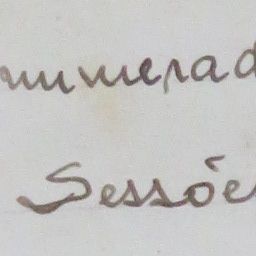 numerad
Sessõe